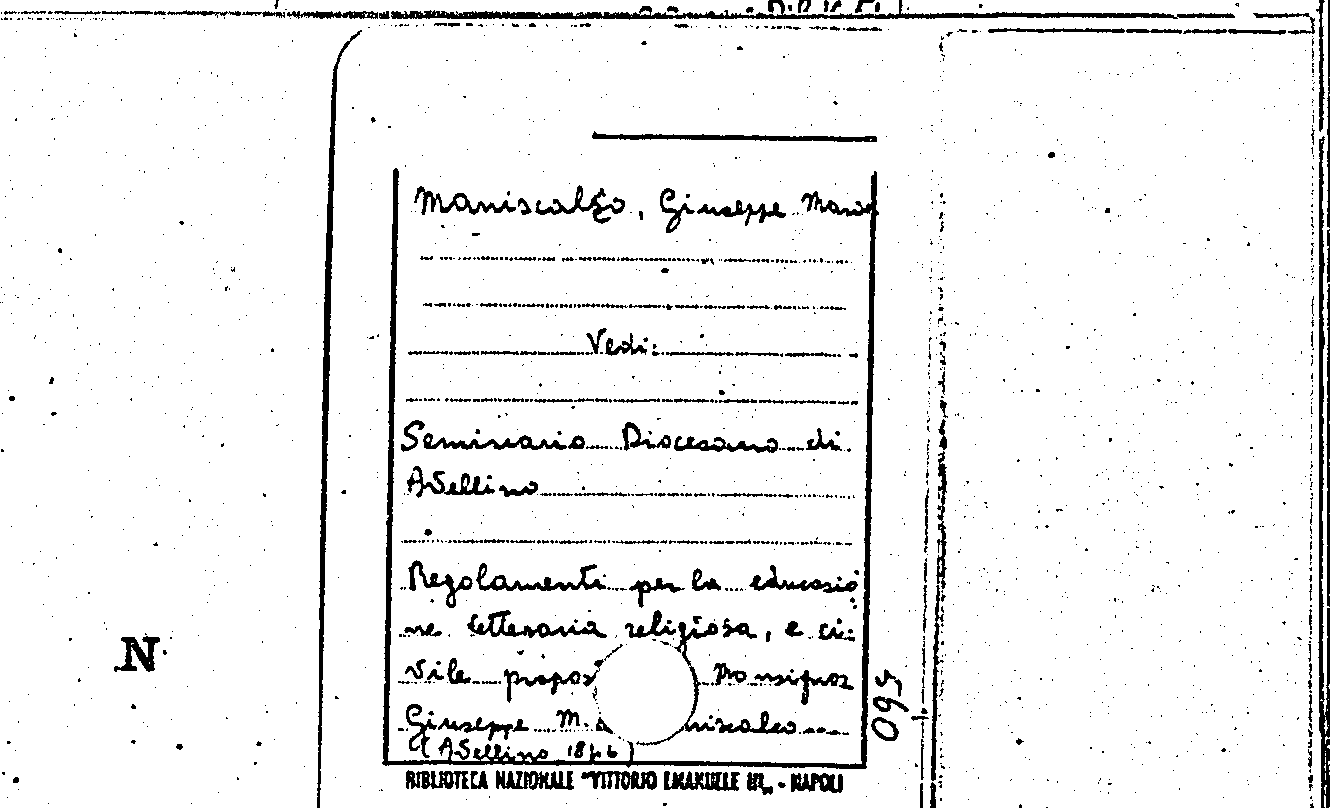 Maniscalco, Giuseppe Maria
Vedi:
Seminario Diocesano di
Avellino
Regolamenti per la educazio
ne letteraria religiosa, e ci:
vile propos Monsignor
Giuseppe M. niscalco
(Avellino
BIBLIOTECA NAZIONALE "VITTORIO EMANUELE III„ - NAPOLI
N
095